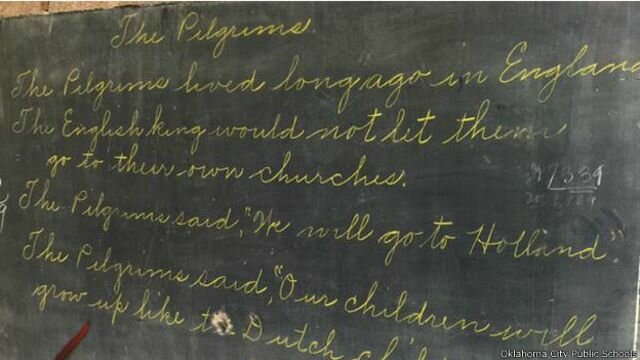 The Pilgrims.
The Pilgrims lived long ago in England
The English king would not let them
go to their own churches.
The Pilgrims said, "We will go to Holland."
The Pilgrims said, "Our children will
grow up like the Dutch
7339
Oklahoma City Public Schools